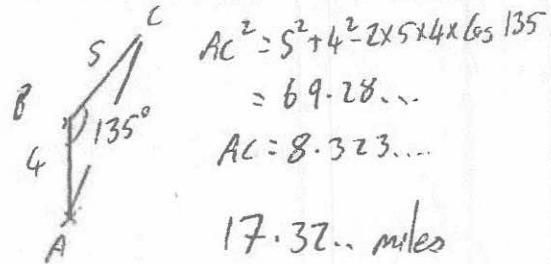 C
5
B
135°
4
A
AC² = 5² + 4² - 2×5×4×Cos 135
= 69.28...
AC = 8.323....
17.32.. miles